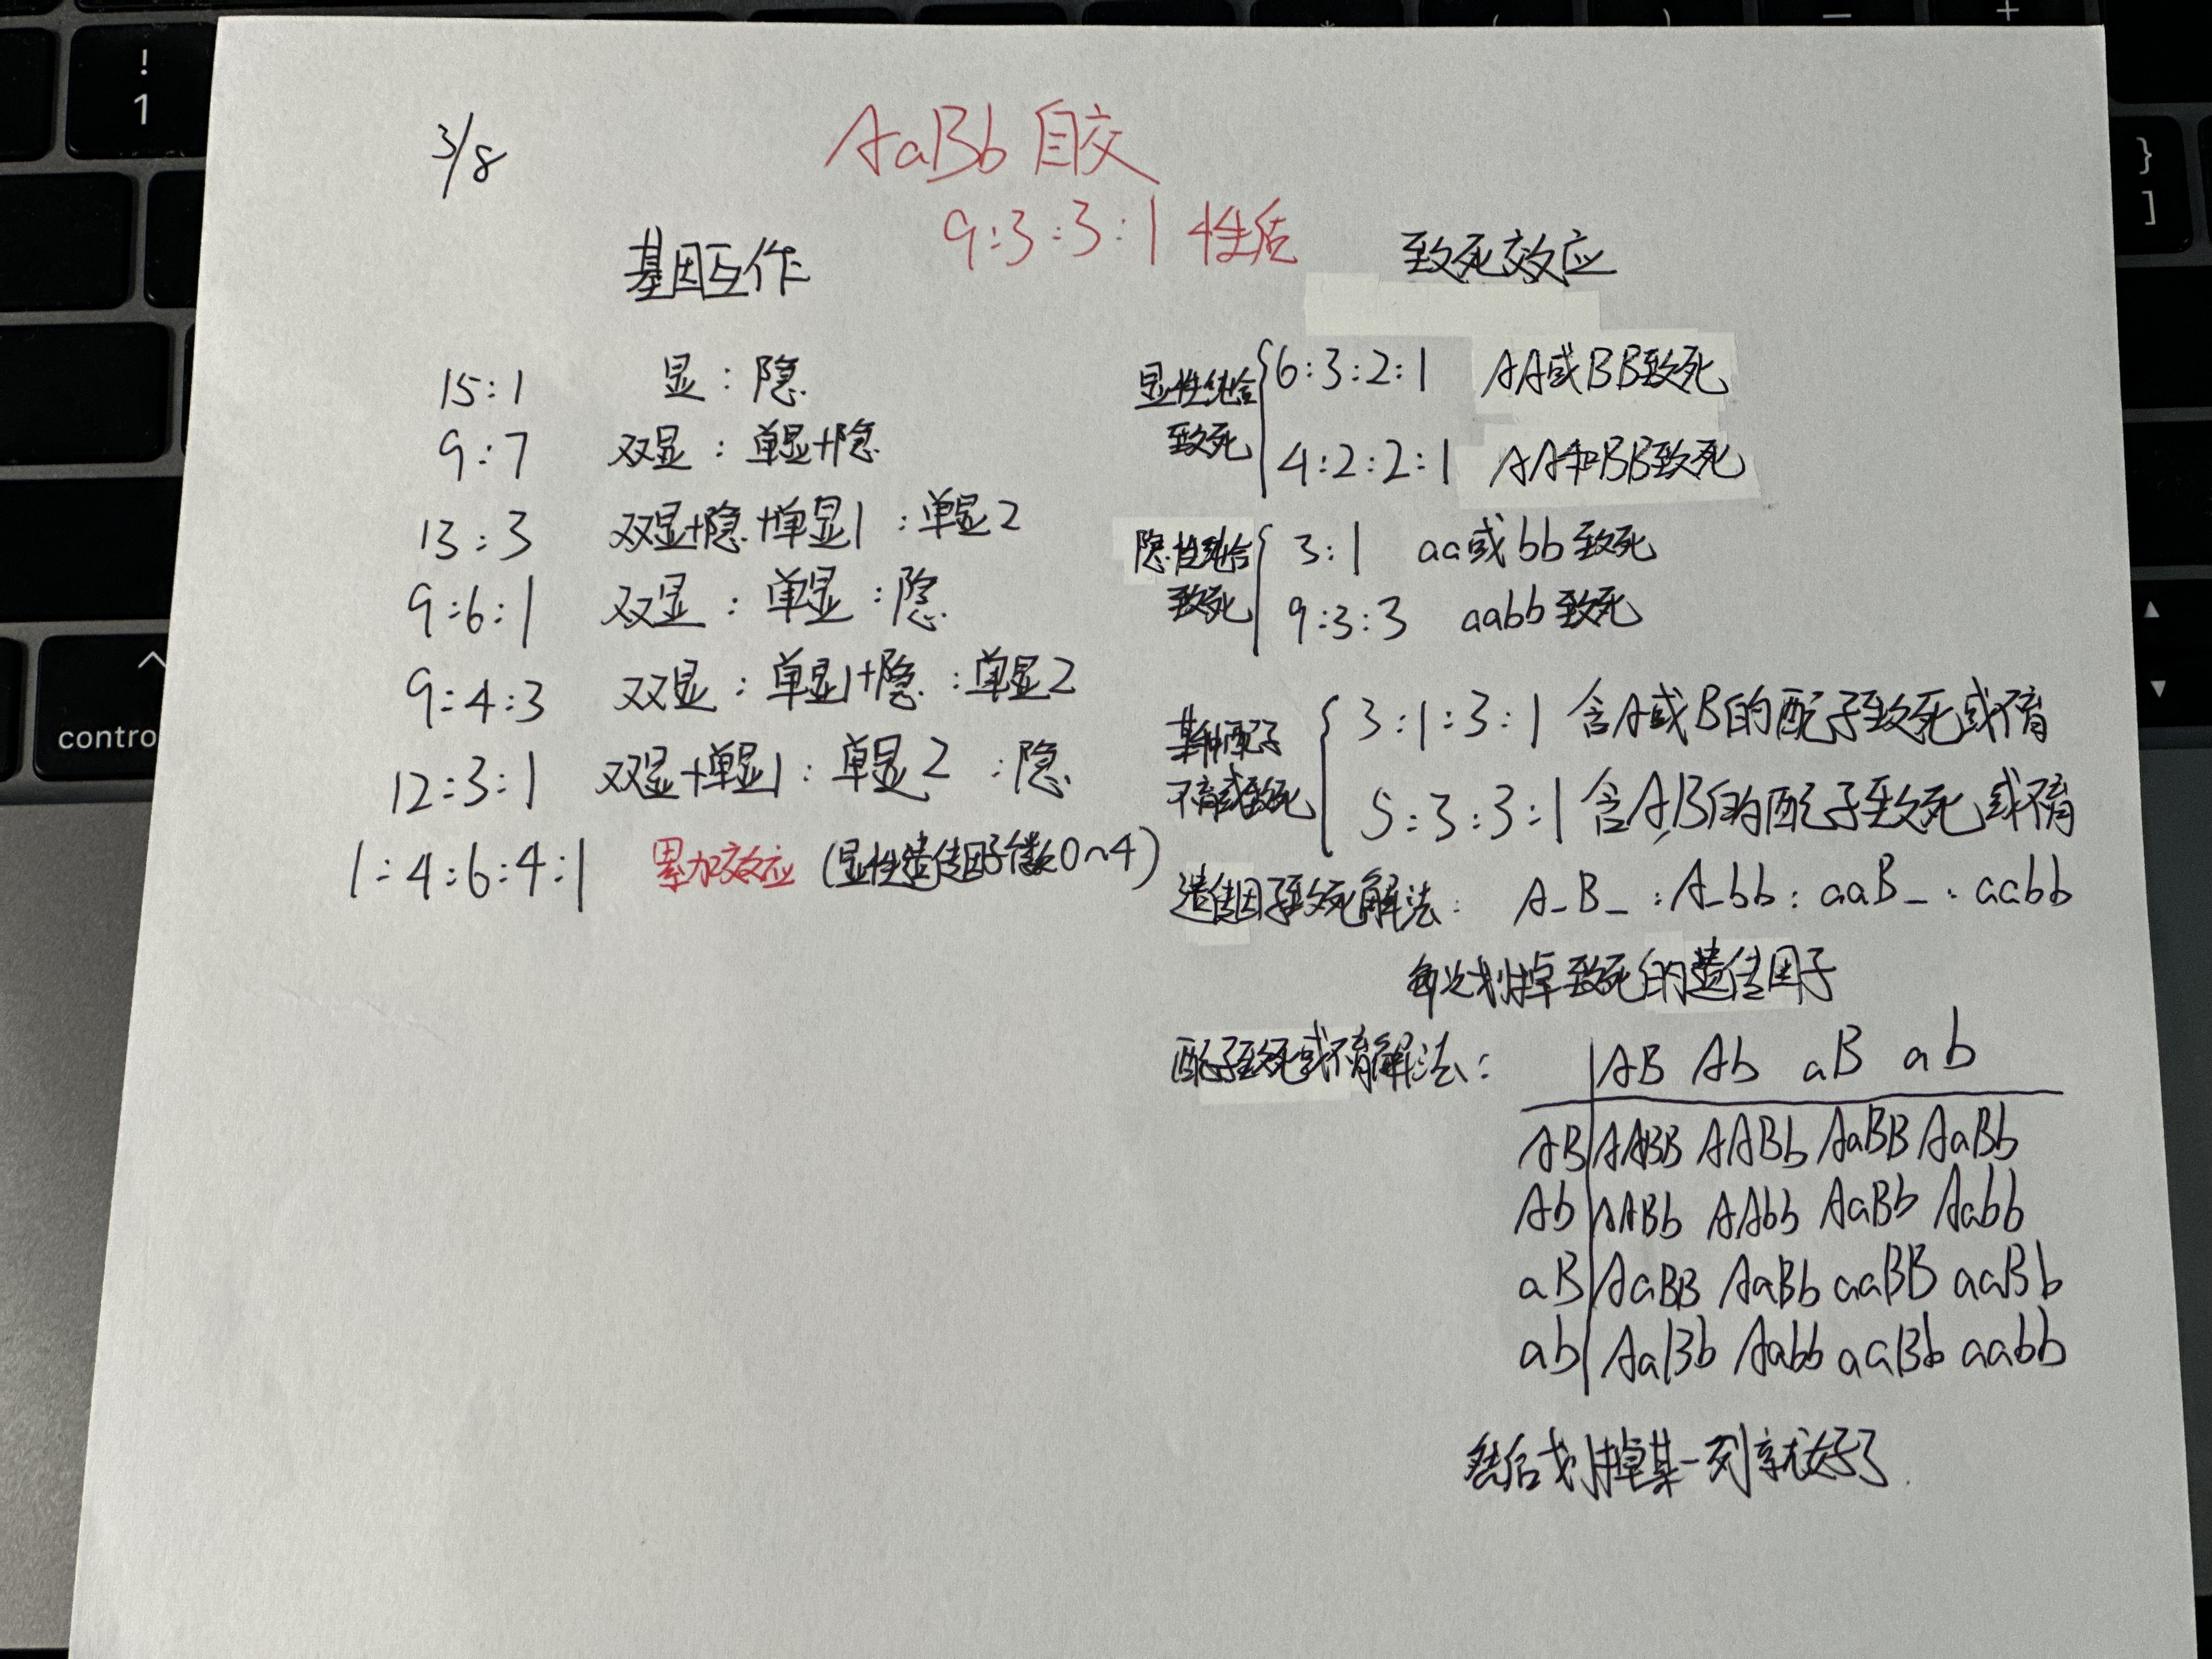 3/8
AaBb 自交
9:3:3:1 性质
基因互作
15:1 显:隐
9:7 双显:单显+隐
13:3 双显+隐+单显1:单显2
9:6:1 双显:单显:隐
9:4:3 双显:单显1+隐:单显2
12:3:1 双显+单显1:单显2:隐
1:4:6:4:1 累加效应(显性遗传因子个数0~4)
致死效应
显性纯合
致死
6:3:2:1 AA或BB致死
4:2:2:1 AA和BB致死
隐性纯合
致死
3:1 aa或bb致死
9:3:3 aabb致死
某种配子
不育或致死
3:1:3:1 含A或B的配子致死或不育
5:3:3:1 含A,B的配子致死或不育
遗传因子致死解法: A_B_:A_bb:aaB_:aabb
每次划掉致死的遗传因子
配子致死或不育解法:
AB Ab aB ab
AB AABB AABb AaBB AaBb
Ab AABb AAbb AaBb Aabb
aB AaBB AaBb aaBB aaBb
ab AaBb Aabb aaBb aabb
然后划掉某一列就好了.
!
1
*
(
)
—
+
}
]
^
contro
▲
▼